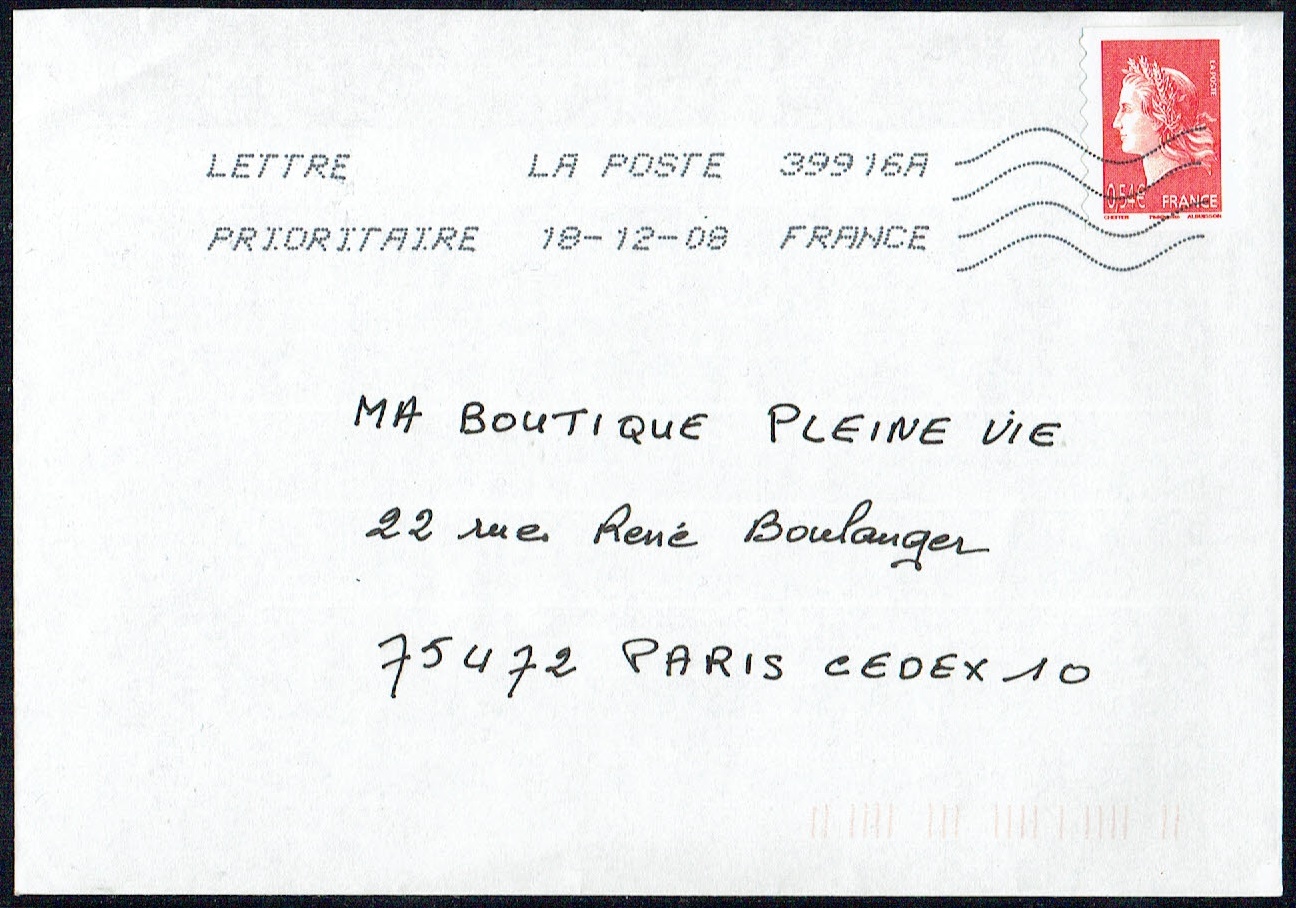 LA POSTE
0,54€ FRANCE
LETTRE LA POSTE 39916A
PRIORITAIRE 18-12-08 FRANCE
MA BOUTIQUE PLEINE VIE
22 rue René Boulanger
75472 PARIS CEDEX 10